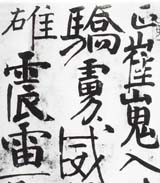 崔嵬入
驕勇威
雄震雷